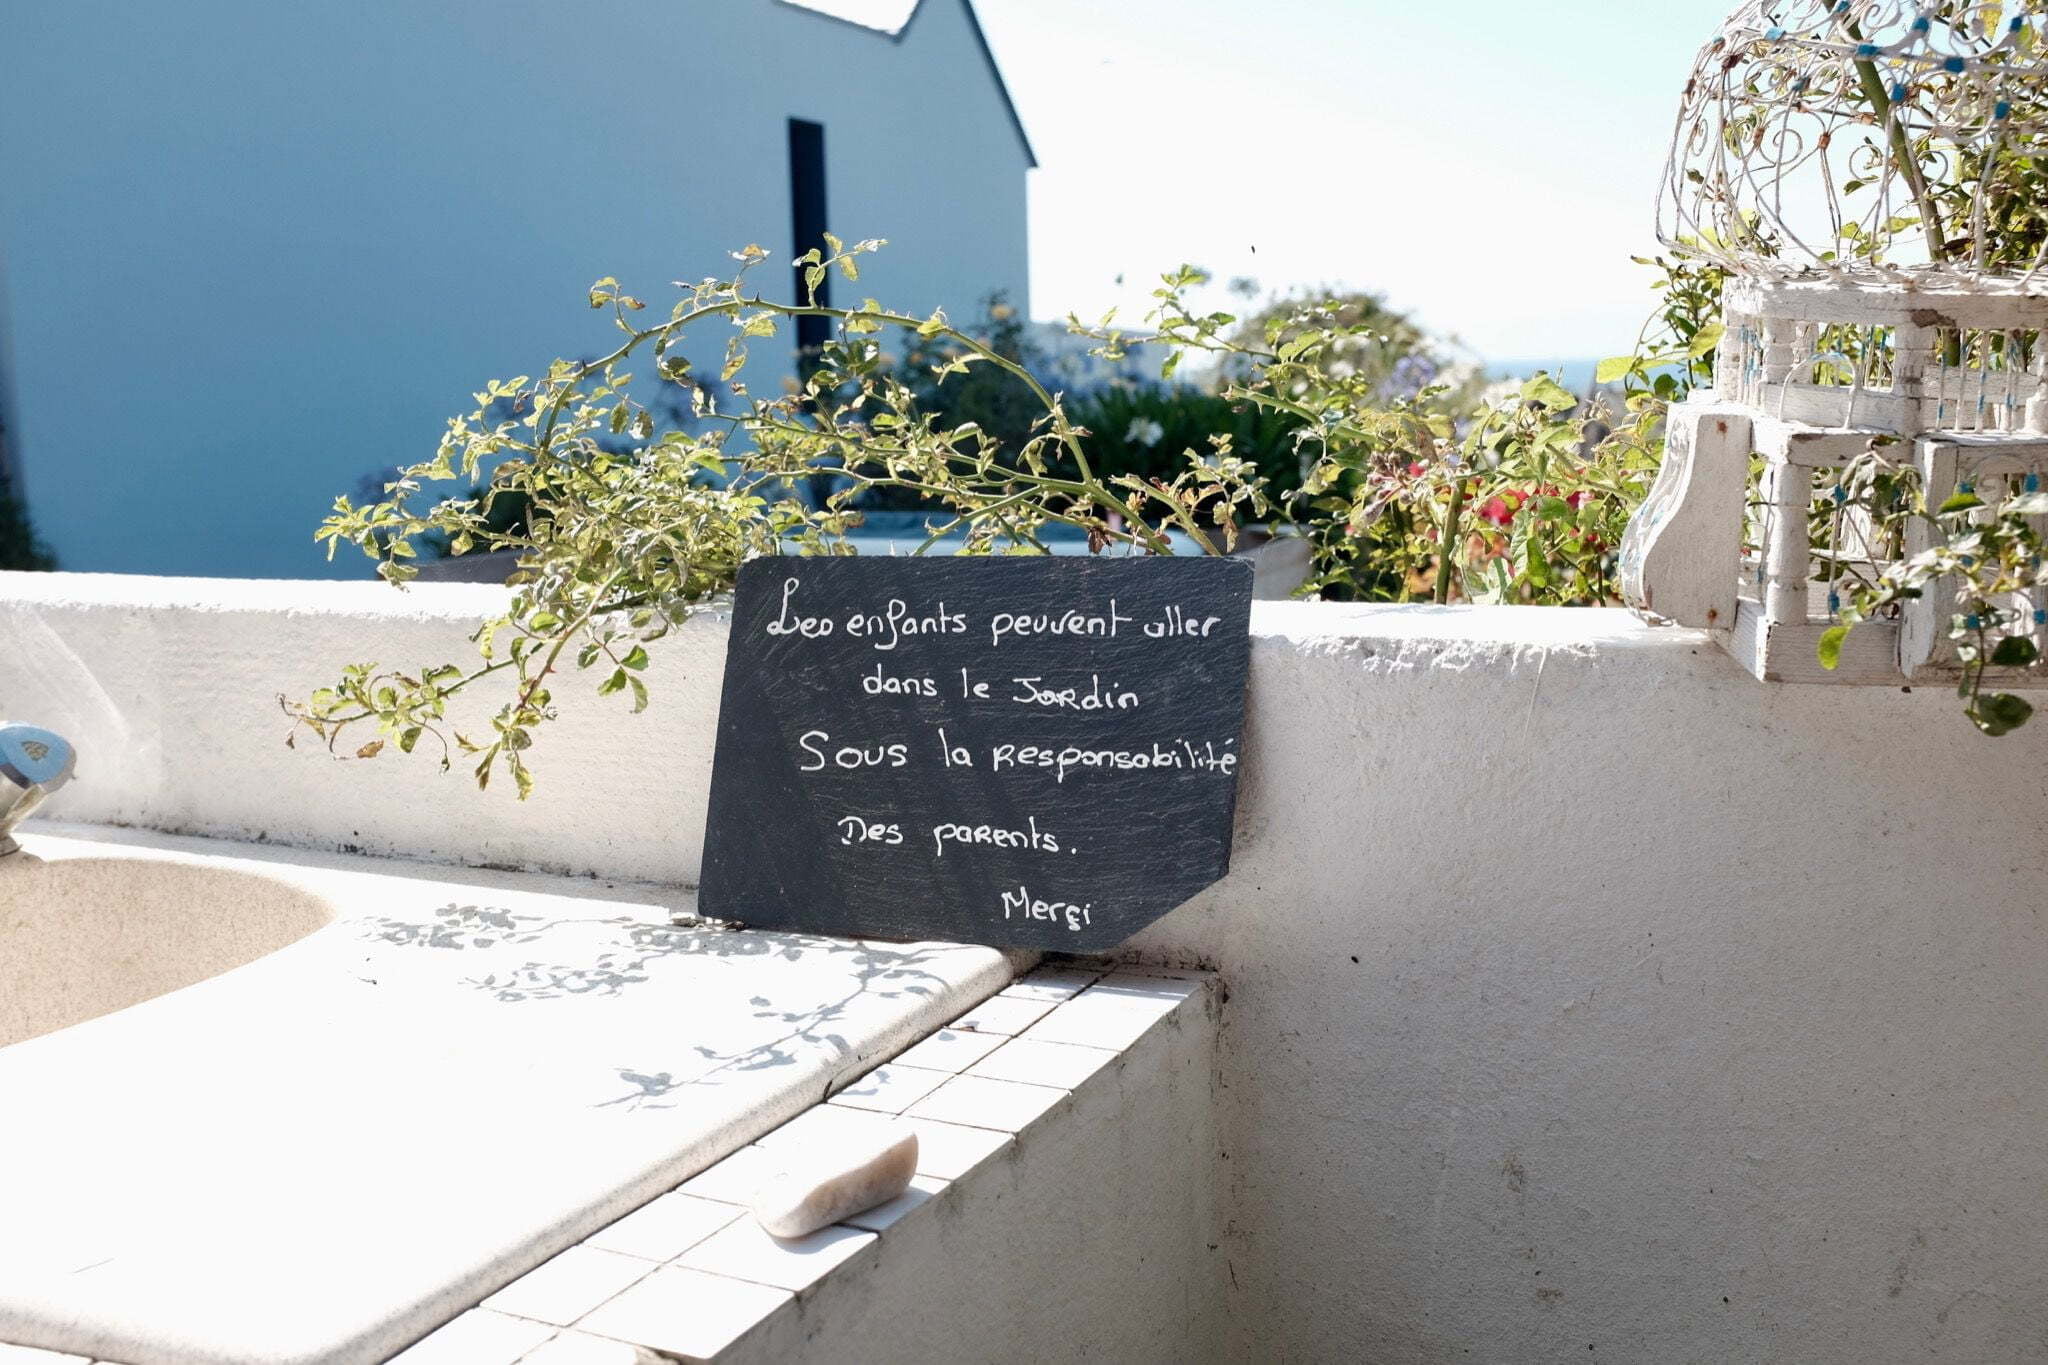 Les enfants peuvent aller
dans le Jardin
Sous la Responsabilité
Des parents.
Merçi